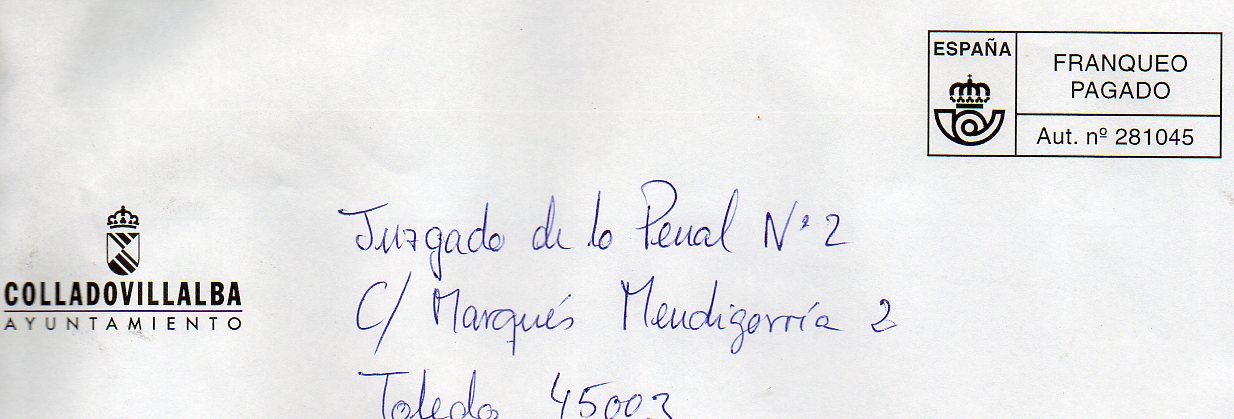 ESPAÑA
FRANQUEO
PAGADO
Aut. nº 281045
Juzgado de lo Penal Nº 2
C/ Marqués Mendigorría 2
Toledo 45003
COLLADOVILLALBA
AYUNTAMIENTO